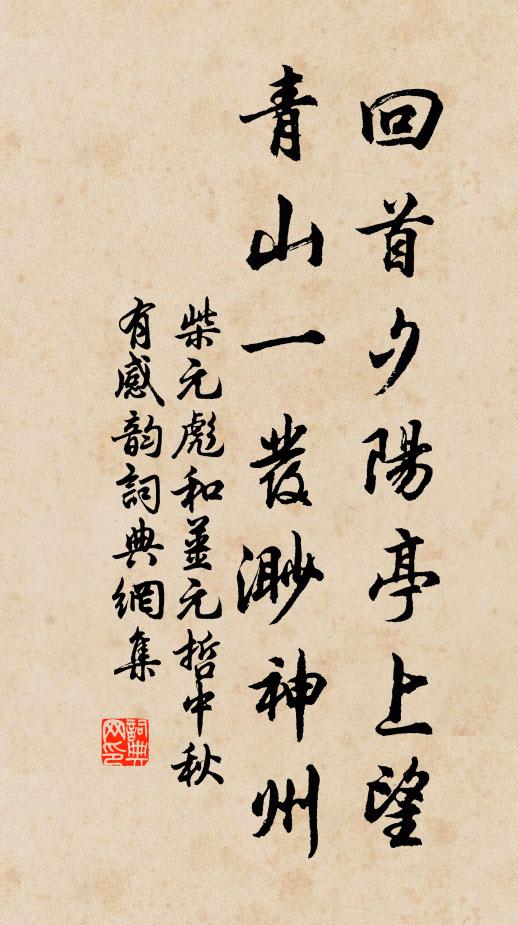 回首夕陽亭上望
青山一發渺神州
柴元彪和薑元哲中秋
有感韵詞典網集
詞典
网印